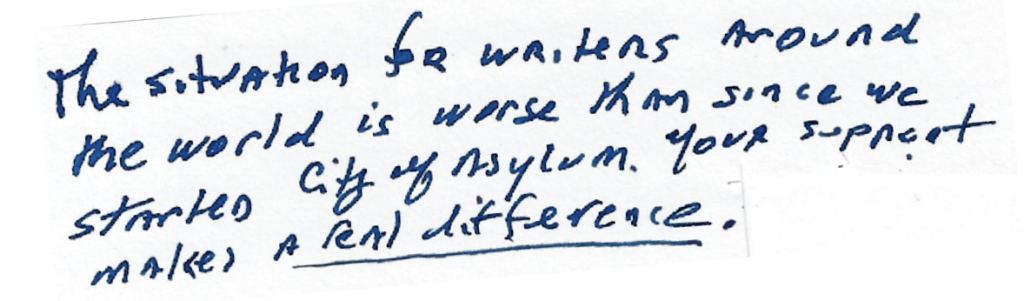 The situation for writers around
the world is worse than since we
started City of Asylum. Your support
makes a real difference.